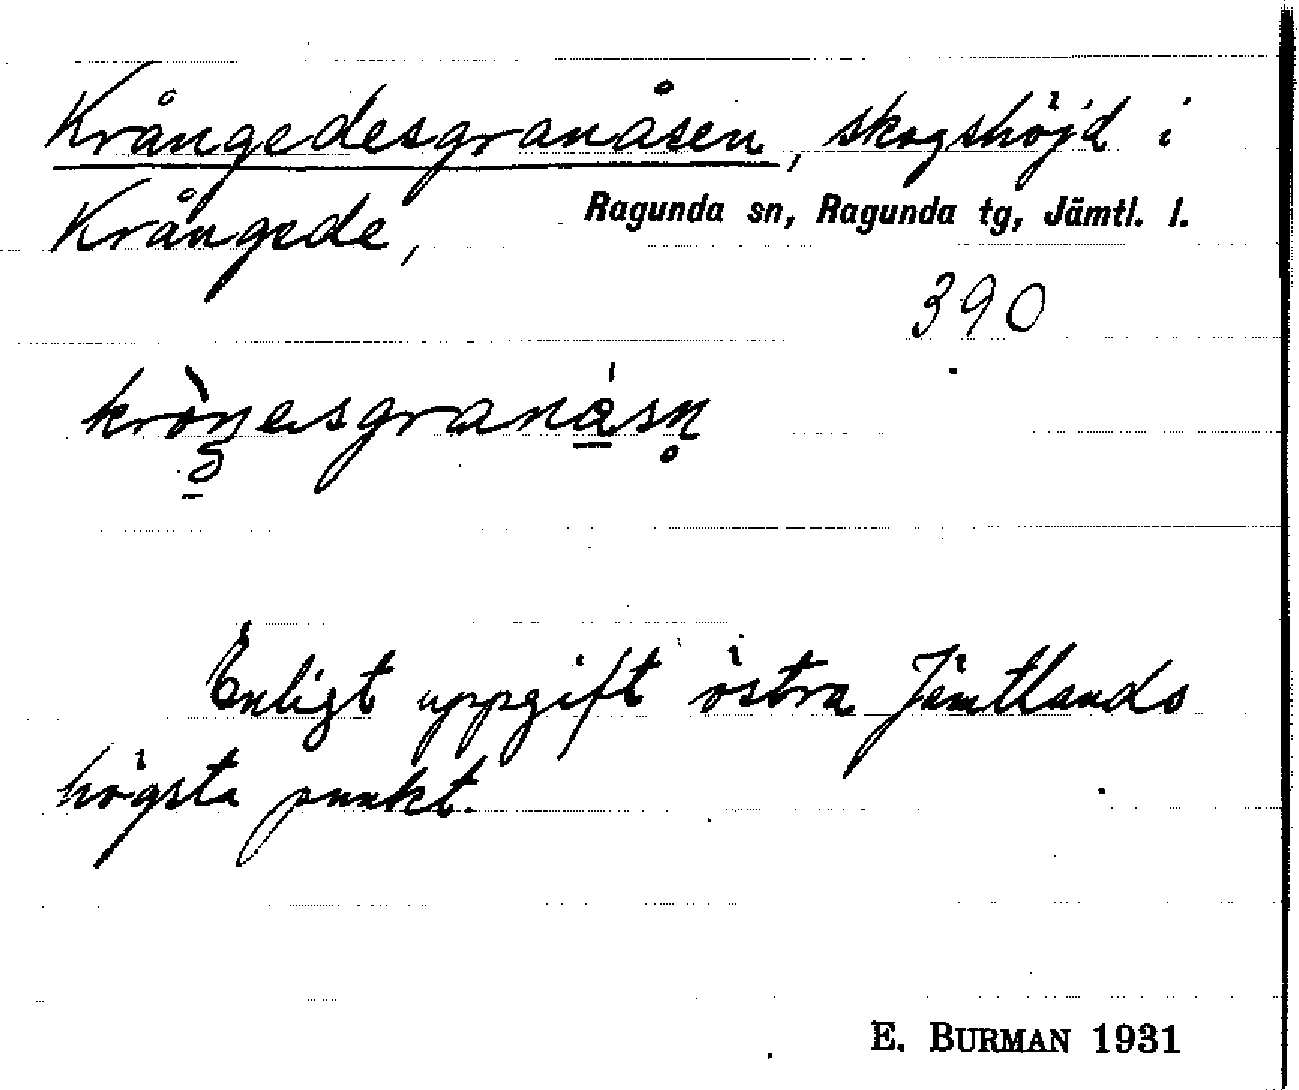 Krångedesgranåsen, skogshöjd i
Krångede, Ragunda sn, Ragunda tg, Jämtl. l.
390
kròŋesgranásn̥
Enligt uppgift östra Jämtlands
högsta punkt.
E. BURMAN 1931